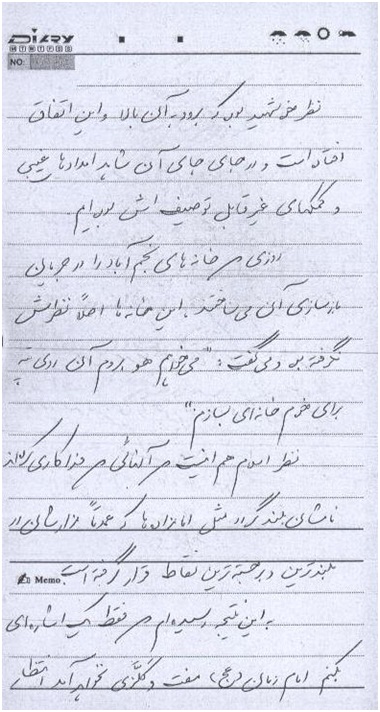 DIARY
M T W T F S S
NO:
نظر خود شهید بود که برود به آن بالا و این اتفاق
افتاده است و در جای جای آن شاهد امدادهای غیبی
و کمکهای غیر قابل توصیف اش بوده ایم
روزی که خانه های نجم آباد را در جریان
بازسازی آن می ساختند، این خانه ها اصلاً نظرش
نگرفته بود و می گفت: "می خواهم بروم آن روی تپه
برای خودم خانه ای بسازم"
نظر اسلام هم اینست که آنهائی که فداکاری کرده اند
نامشان بلند گردد مثل امامزاده ها که عمدتاً مزارشان در
Memo بلندترین و برجسته ترین نقاط قرار گرفته است
به این نتیجه رسیده ام که فقط یک اشاره ای
بکنم امام زمان (عج) مفت و نخواهد آمد انتظار